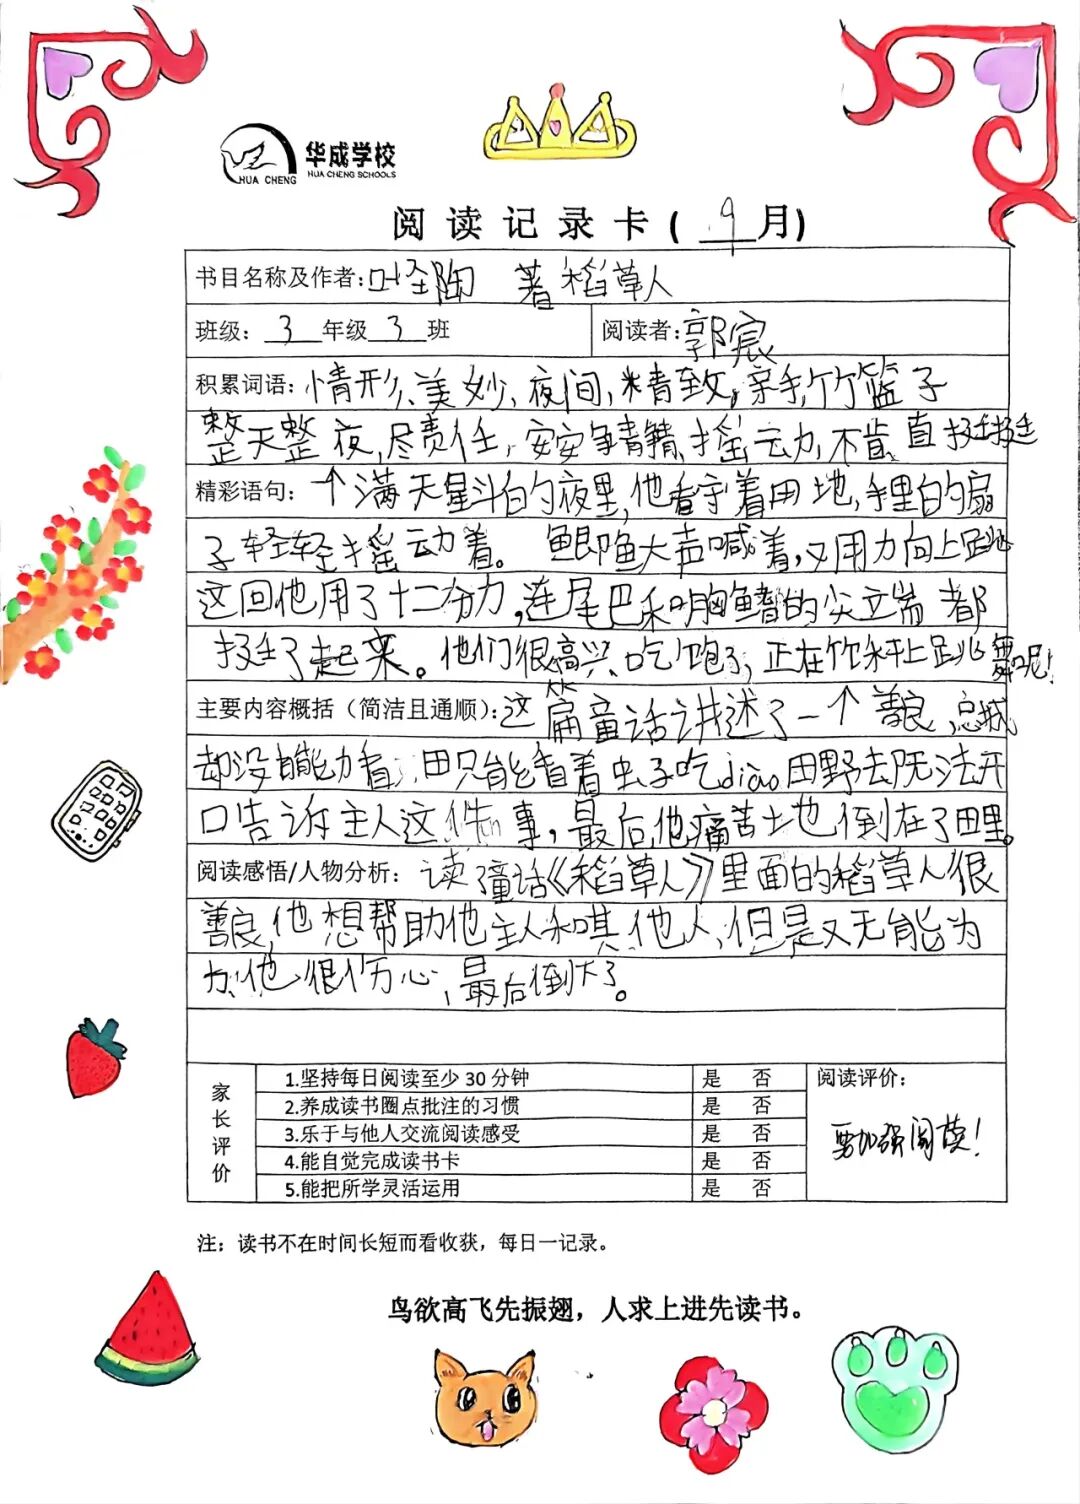 华成学校
HUA CHENG
HUA CHENG SCHOOLS
阅读记录卡(9月)
书目名称及作者:叶圣陶 著稻草人
班级:3年级3班 阅读者:郭宸
积累词语:情形、美妙、夜间,精致,亲手,竹篮子
整天整夜,尽责任,安安静静,摇动,不肯,直挺挺
精彩语句:一个满天星斗的夜里,他看守着田地,手里的扇
子轻轻摇动着。鲫鱼大声喊着,又用力向上跳
这回他用了十二分力,连尾巴和胸鳍的尖端都
挺了起来。他们很高兴,吃饱了,正在竹杆上跳舞呢!
主要内容概括(简洁且通顺):这篇童话讲述了一个善良,忠诚
却没能力看田只能看着虫子吃diào田野去既无法开
口告诉主人这件事,最后他痛苦地倒在了田里。
阅读感悟/人物分析:读了童话《稻草人》里面的稻草人很
善良,他想帮助他主人和其他人,但是又无能为
力,他很伤心,最后倒下了。
家长评价
1.坚持每日阅读至少30分钟 是 否
2.养成读书圈点批注的习惯 是 否
3.乐于与他人交流阅读感受 是 否
4.能自觉完成读书卡 是 否
5.能把所学灵活运用 是 否
阅读评价:
要加强阅读!
注:读书不在时间长短而看收获,每日一记录。
鸟欲高飞先振翅,人求上进先读书。